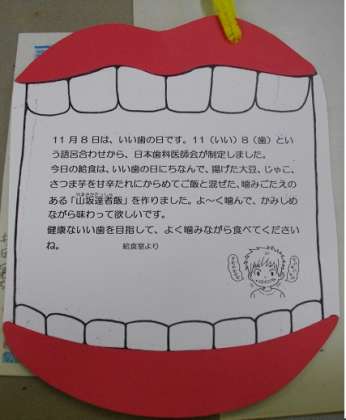 11月8日は、いい歯の日です。11（いい）8（歯）とい
う語呂合わせから、日本歯科医師会が制定しました。
今日の給食は、いい歯の日にちなんで、揚げた大豆、じゃこ、
さつま芋を甘辛たれにからめてご飯と混ぜた、噛みごたえの
ある「山坂達者飯」を作りました。よ～く噛んで、かみしめ
ながら味わって欲しいです。
健康ないい歯を目指して、よく噛みながら食べてくださいね。
給食室より